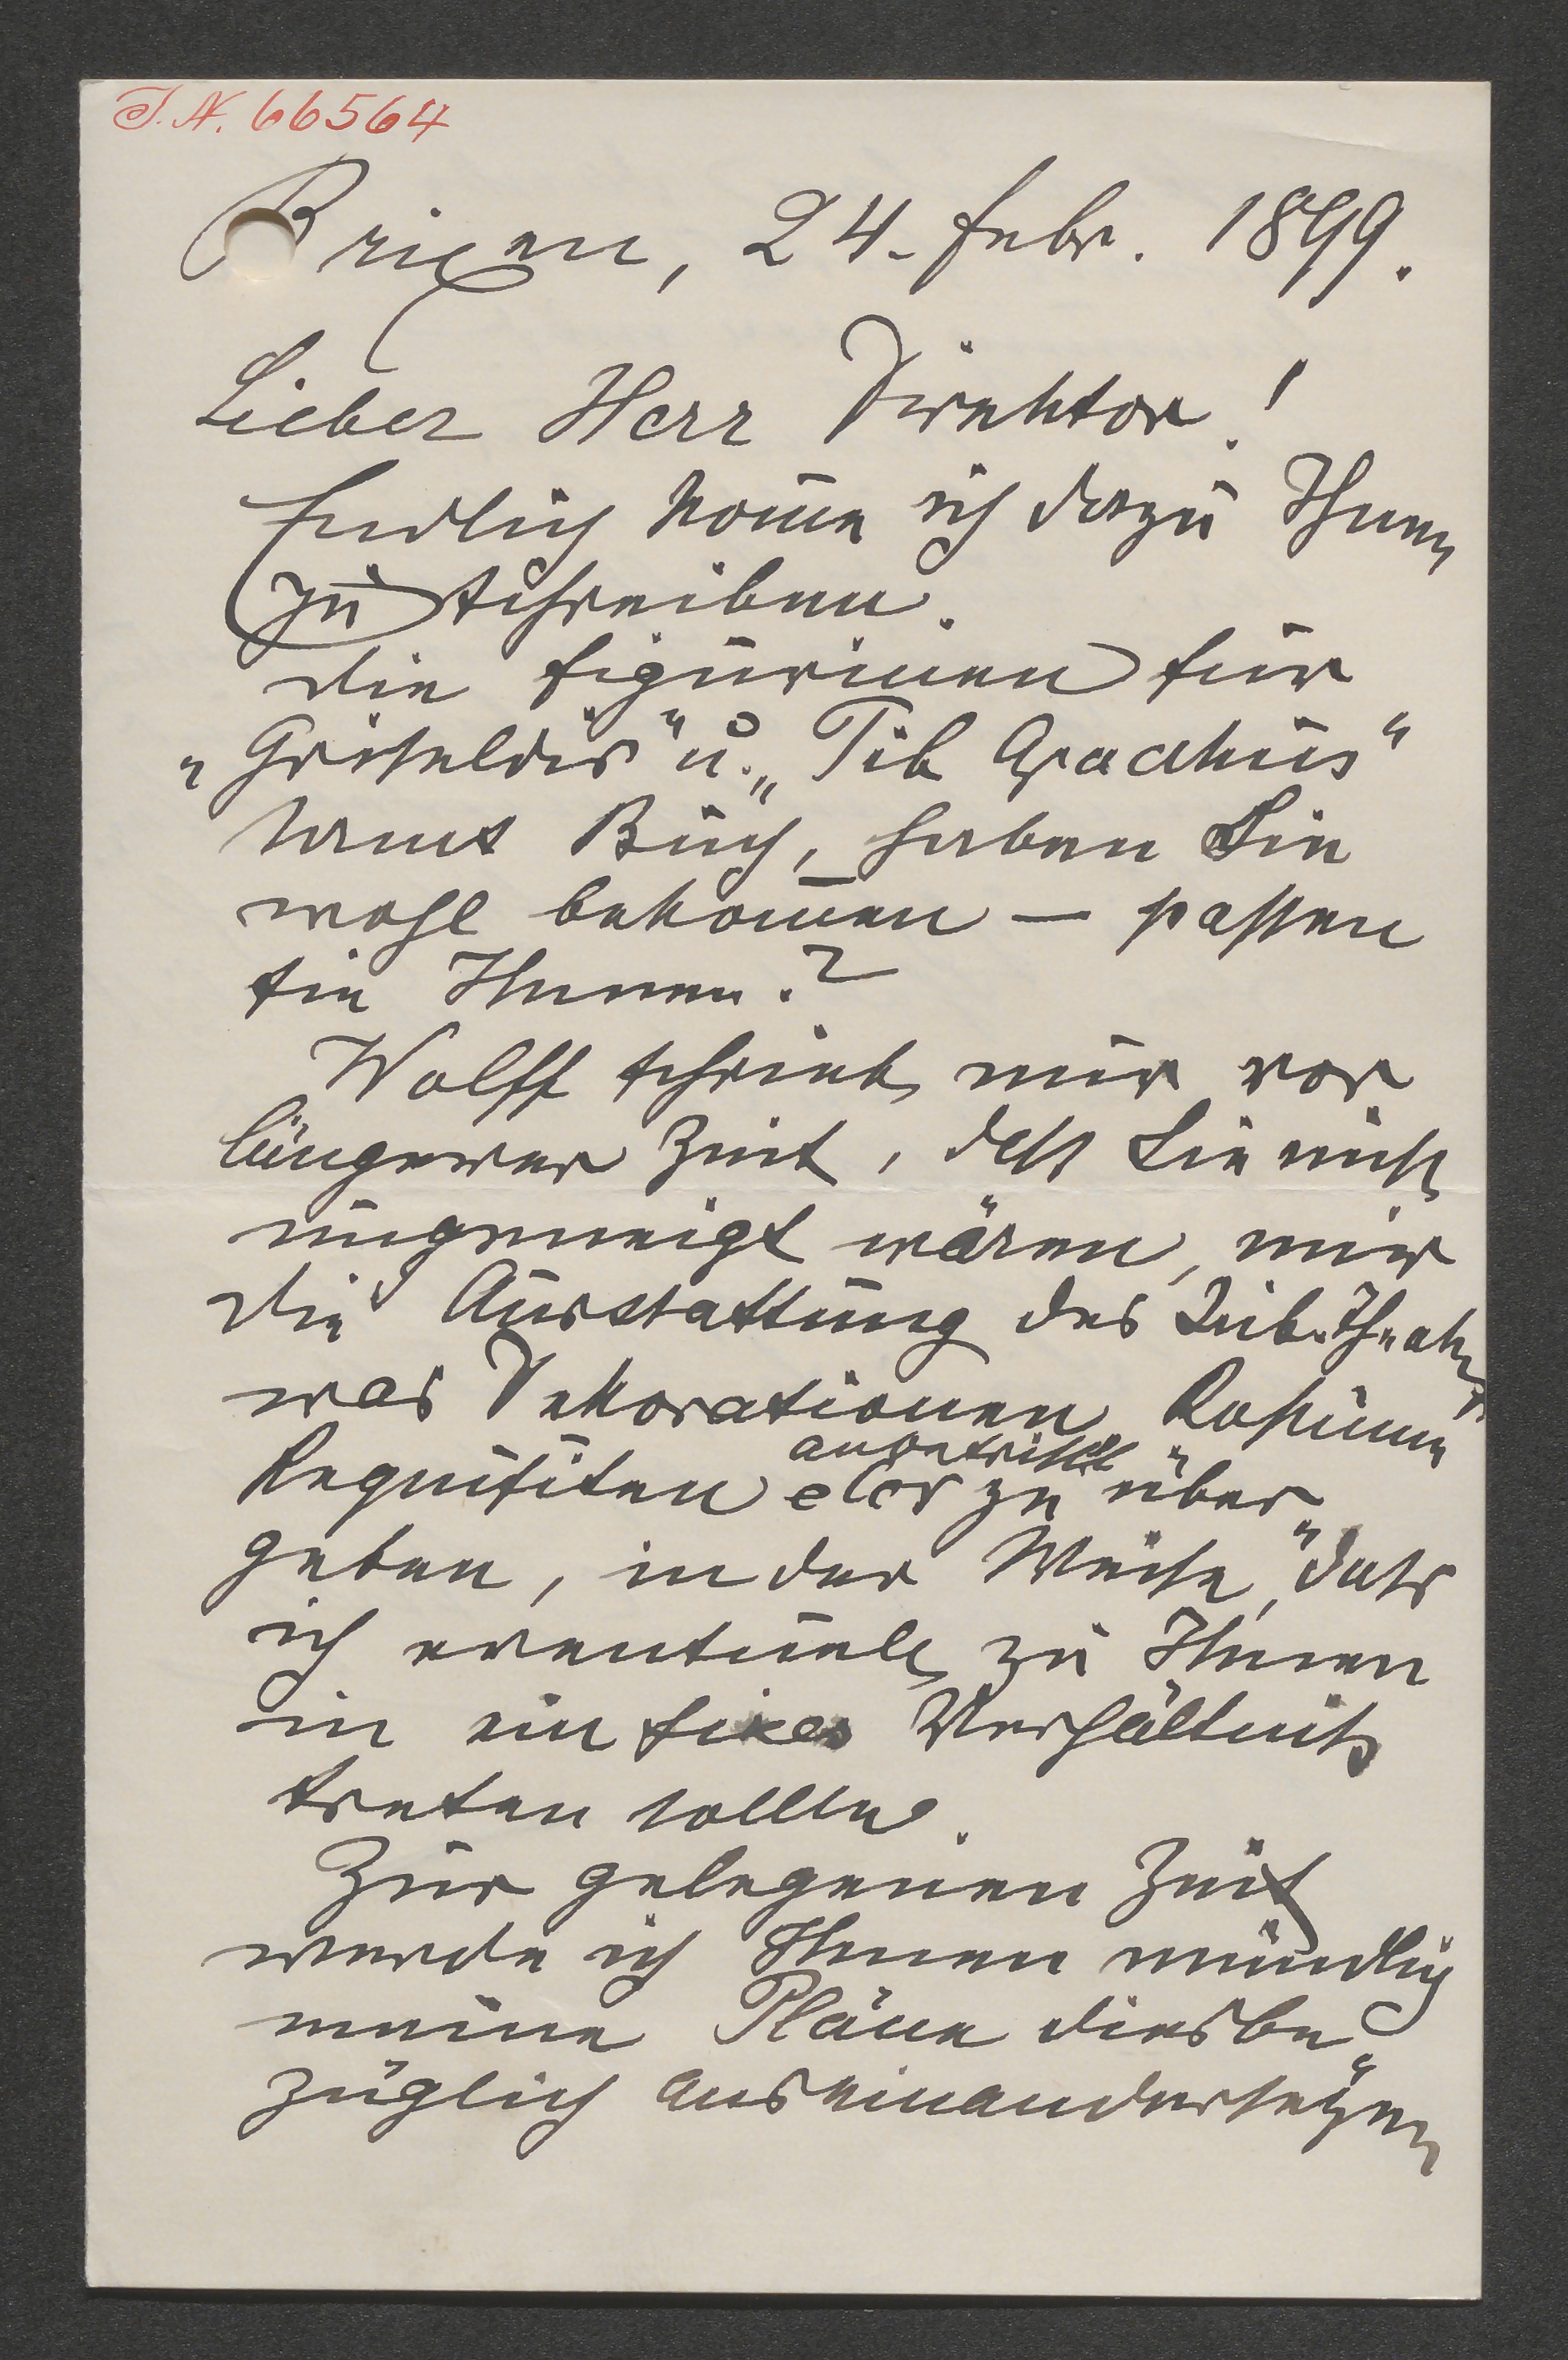 I.N. 66564
Brixen, 24. Febr. 1899.
Lieber Herr Direktor!
Endlich kom̅e ich dazu Ihnen
zu schreiben.
Die Figurinen für
„Griseldis" u. „Tib Gracchus"
samt Buch, haben Sie
wohl bekom̅en — passen
sie Ihnen?
Wolff schrieb mir vor
längerer Zeit, dass Sie nicht
ungeneigt wären, mir
die Ausstattung des Jub. Theaters
was Dekorationen Kostüme
Requisiten etc anbetrifft zu über„
geben, in der Weise, dass
ich eventuell zu Ihnen
in ein fixes Verhältniß
treten sollte.
Zur gelegenen Zeit
werde ich Ihnen mündlich
meine Pläne diesbe„
züglich auseinandersetzen